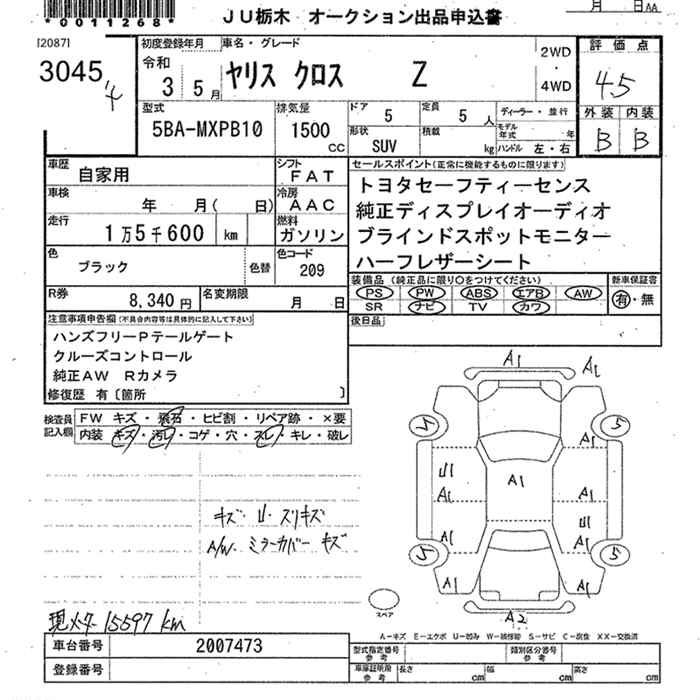 *0011268*
JU栃木 オークション出品申込書
月 日AA
[2087]
3045
初度登録年月 車名・グレード
令和
3 5月
ヤリス クロス Z
2WD
・
4WD
評価点
4.5
外装 内装
B B
型式
5BA-MXPB10
排気量
1500
cc
ドア 5
定員 5人
形状 SUV
積載 kg
ディーラー・並行
モデル年式 年
ハンドル 左・右
車歴 自家用
シフト FAT
車検 年 月( 日)
冷房 AAC
走行 1万5千600 km
燃料 ガソリン
色 ブラック
色替
色コード 209
R券 8,340円
名変期限 月 日
セールスポイント(正常に機能するものに限ります)
トヨタセーフティーセンス
純正ディスプレイオーディオ
ブラインドスポットモニター
ハーフレザーシート
装備品 (純正品に限り○をつけてください)
PS PW ABS エアB AW
SR ナビ TV カワ
新車保証書
有・無
後日品
注意事項申告欄(不具合内容等は具体的に記入して下さい)
ハンズフリーPテールゲート
クルーズコントロール
純正AW Rカメラ
修復歴 有〔箇所 〕
検査員記入欄
FW キズ・飛石・ヒビ割・リペア跡・×要
内装 キズ・汚レ・コゲ・穴・スレ・キレ・破レ
A1 A1
5 5
A1
U1
A1
A1
A1
U1
A1
A1
5 5
A1 A1
A2
スペア
キズ U スリキズ
A/W ミラーカバー キズ
現メーター 15597 km
A−キズ E−エクボ U−凹み W−補修跡 S−サビ C−腐食 XX−交換済
車台番号 2007473
登録番号
型式指定番号 参考
類別区分番号 参考
車庫証明用 参考
長さ cm 幅 cm 高さ cm